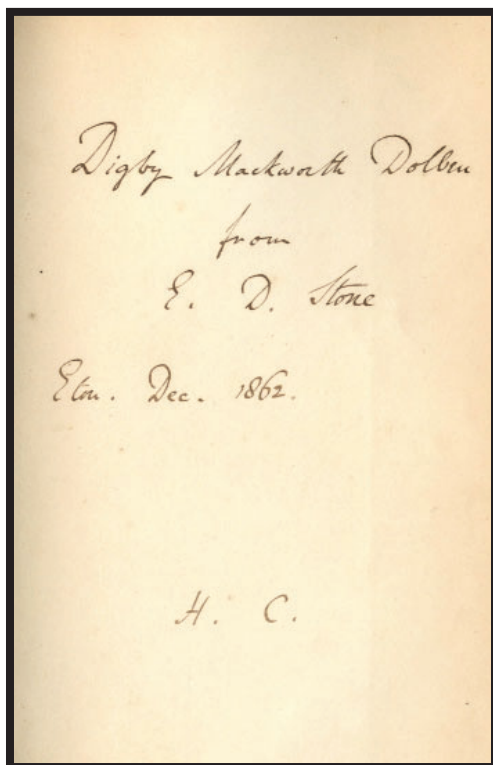 Digby Mackworth Dolben
from
E. D. Stone
Eton. Dec. 1862.
H. C.